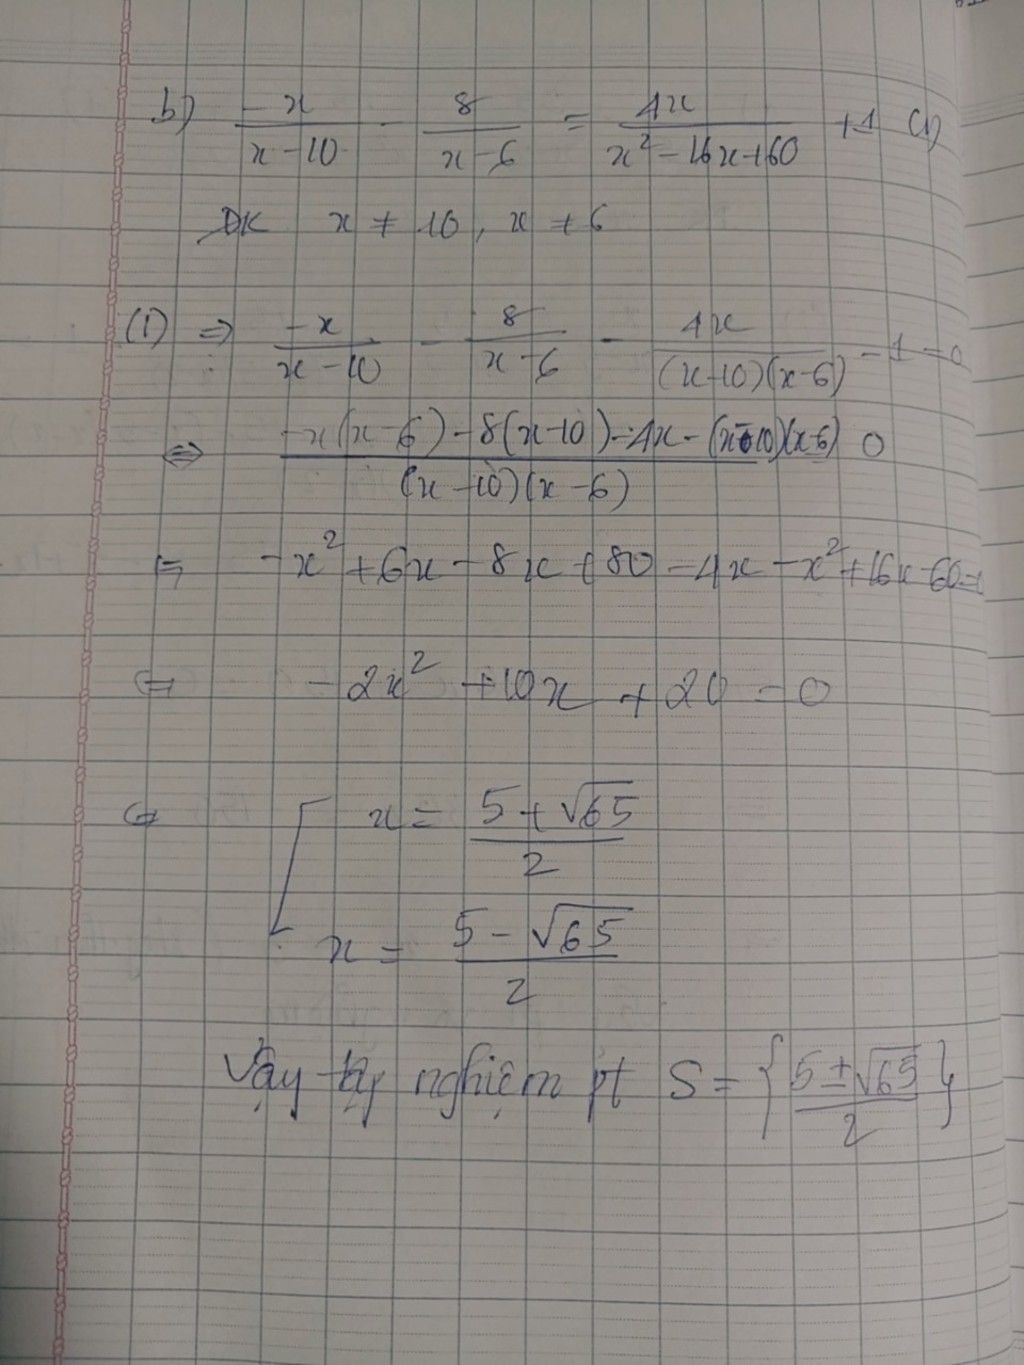 b) -x/(x-10) - 8/(x-6) = 4x/(x²-16x+60) +1 (1)
ĐK x ≠ 10, x ≠ 6
(1) ⇒ -x/(x-10) - 8/(x-6) - 4x/((x-10)(x-6)) - 1 = 0
⇔ (-x(x-6) - 8(x-10) - 4x - (x-10)(x-6))/((x-10)(x-6)) 0
⇔ -x² + 6x - 8x + 80 - 4x - x² + 16x - 60 =
⇔ -2x² + 10x + 20 = 0
⇔ [ x = (5 + √65)/2
x = (5 - √65)/2
Vậy tập nghiệm pt S = {(5 ± √65)/2}